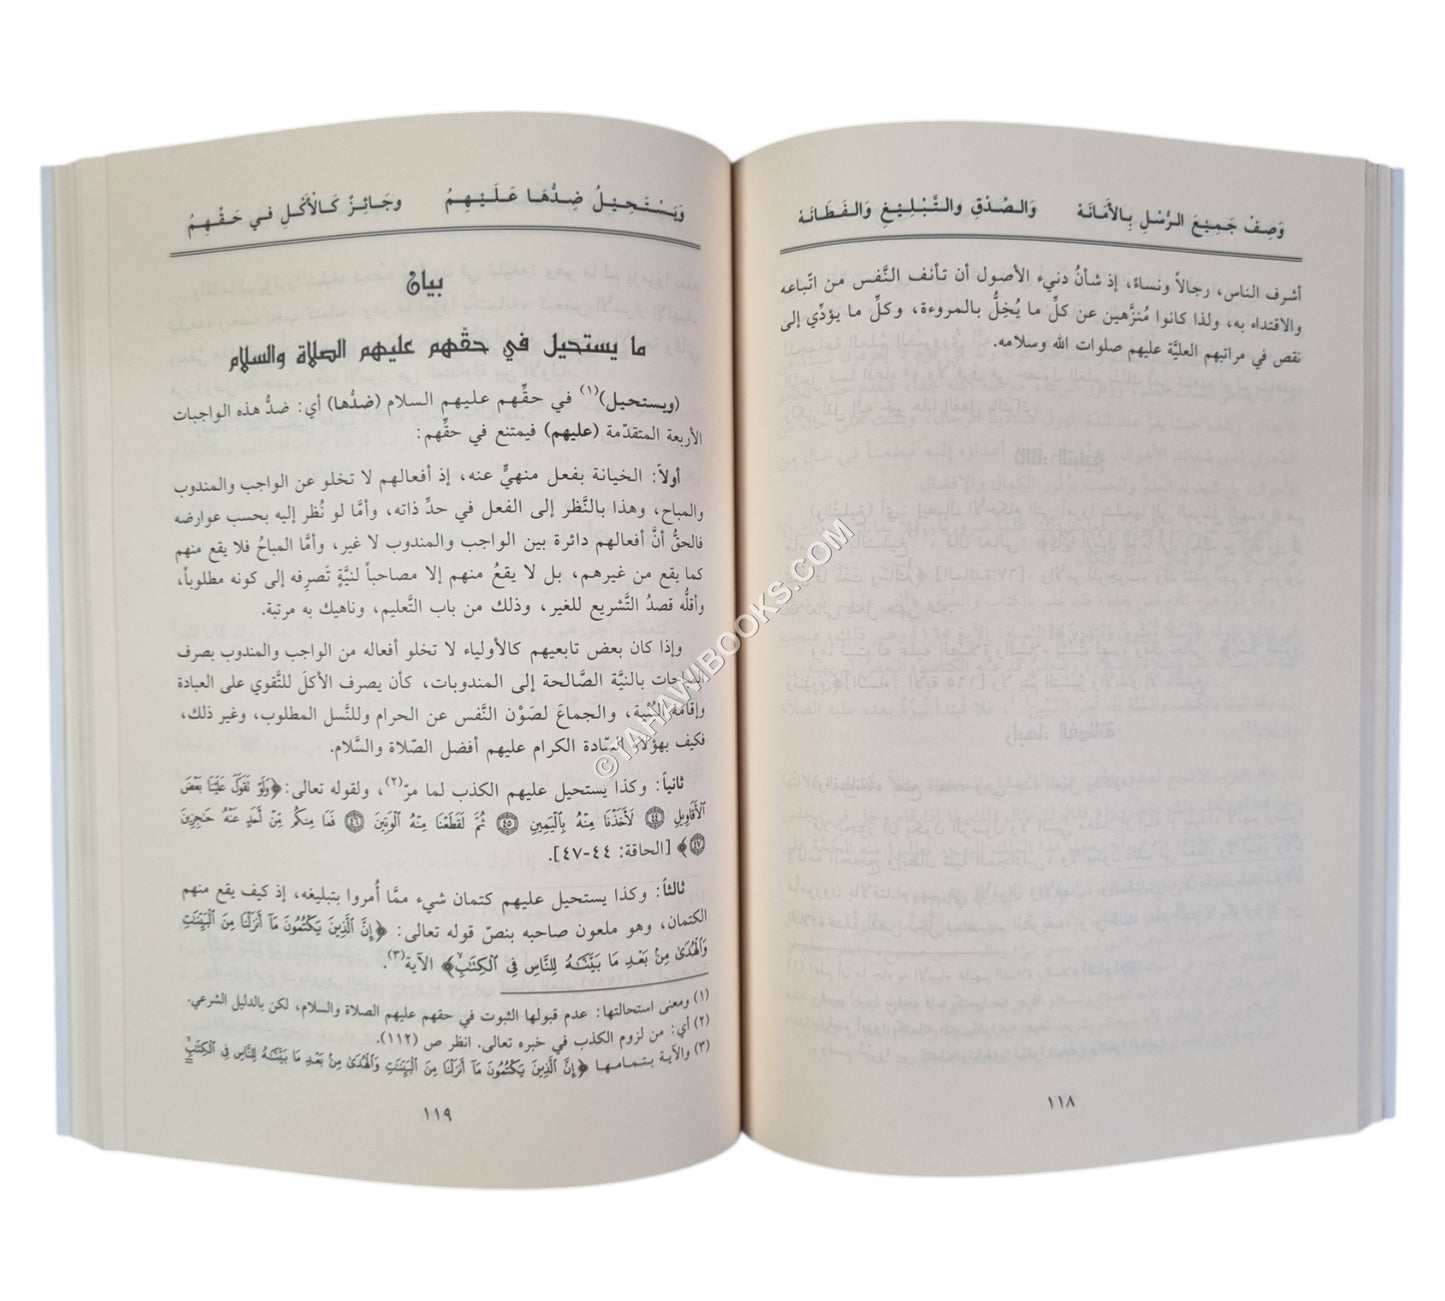 وَصِفْ جَمِيْعَ الرُّسْلِ بِالأَمَانَهْ وَالصِّدْقِ والتَّبْلِيْغِ وَالفَطَانَهْ
أشرف الناس، رجالاً ونساءً، إذ شأنُ دنيء الأصول أن تأنف النَّفس من اتّباعه
والاقتداء به، ولذا كانوا مُنزَّهين عن كلِّ ما يُخِلُّ بالمروءة، وكلِّ ما يؤدِّي إلى
نقص في مراتبهم العليَّة عليهم صلوات الله وسلامه.
١١٨
وَيَسْتَحِيْلُ ضِدُّهَا عَلَيْهِمُ وجَائِزٌ كَالأَكْلِ في حَقِّهِمُ
بيان
ما يستحيل في حقّهم عليهم الصلاة والسلام
(ويستحيل)(١) في حقِّهم عليهم السلام (ضدُّها) أي: ضدُّ هذه الواجبات
الأربعة المتقدّمة (عليهم) فيمتنع في حقِّهم:
أولاً: الخيانة بفعل منهيٍّ عنه، إذ أفعالهم لا تخلو عن الواجب والمندوب
والمباح، وهذا بالنَّظر إلى الفعل في حدِّ ذاته، وأمَّا لو نُظر إليه بحسب عوارضه
فالحقُّ أنَّ أفعالهم دائرة بين الواجب والمندوب لا غير، وأمَّا المباحُ فلا يقع منهم
كما يقع من غيرهم، بل لا يقعُ منهم إلا مصاحباً لنيَّةٍ تَصرِفه إلى كونه مطلوباً،
وأقلُّه قصدُ التَّشريع للغير، وذلك من باب التَّعليم، وناهيك به مرتبة.
وإذا كان بعض تابعيهم كالأولياء لا تخلو أفعاله من الواجب والمندوب بصرف
المباحات بالنيَّة الصَّالحة إلى المندوبات، كأن يصرف الأكلَ للتَّقوي على العبادة
وإقامة البُنْية، والجماعَ لصَوْن النَّفس عن الحرام وللنَّسل المطلوب، وغير ذلك،
فكيف بهؤلاء السَّادة الكرام عليهم أفضل الصَّلاة والسَّلام.
ثانياً: وكذا يستحيل عليهم الكذب لما مرّ(٢)، ولقوله تعالى: ﴿وَلَوْ تَقَوَّلَ عَلَيْنَا بَعْضَ
الْأَقَاوِيلِ ﴿٤٤﴾ لَأَخَذْنَا مِنْهُ بِالْيَمِينِ ﴿٤٥﴾ ثُمَّ لَقَطَعْنَا مِنْهُ الْوَتِينَ ﴿٤٦﴾ فَمَا مِنكُم مِّنْ أَحَدٍ عَنْهُ حَاجِزِينَ
﴿٤٧﴾﴾ [الحاقة: ٤٤-٤٧].
ثالثاً: وكذا يستحيل عليهم كتمان شيء ممَّا أُمروا بتبليغه، إذ كيف يقع منهم
الكتمان، وهو ملعون صاحبه بنصّ قوله تعالى: ﴿إِنَّ الَّذِينَ يَكْتُمُونَ مَا أَنزَلْنَا مِنَ الْبَيِّنَاتِ
وَالْهُدَىٰ مِنْ بَعْدِ مَا بَيَّنَّاهُ لِلنَّاسِ فِي الْكِتَابِ﴾ الآية(٣).
(١) ومعنى استحالتها: عدم قبولها الثبوت في حقهم عليهم الصلاة والسلام، لكن بالدليل الشرعي.
(٢) أي: من لزوم الكذب في خبره تعالى. انظر ص (١١٢).
(٣) والآية بتمامها ﴿إِنَّ الَّذِينَ يَكْتُمُونَ مَا أَنزَلْنَا مِنَ الْبَيِّنَاتِ وَالْهُدَىٰ مِنْ بَعْدِ مَا بَيَّنَّاهُ لِلنَّاسِ فِي الْكِتَابِ
١١٩
© TAHAWIBOOKS.COM